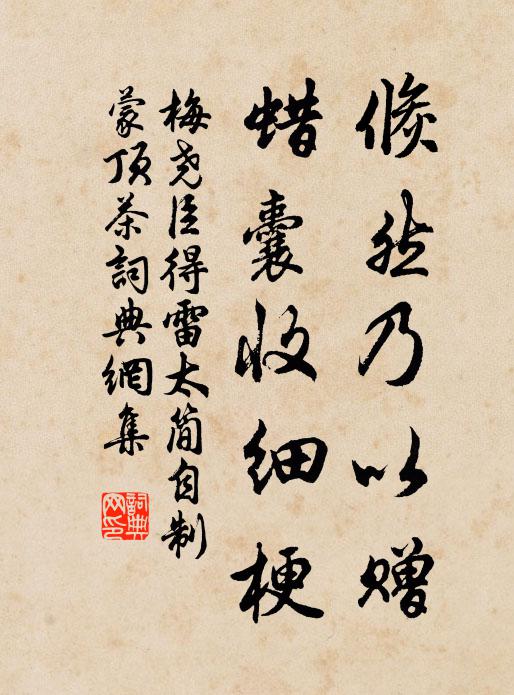 倐然乃以贈
蜡囊收細梗
梅尧臣得雷太简自制
蒙頂茶詞典網集
詞典网印